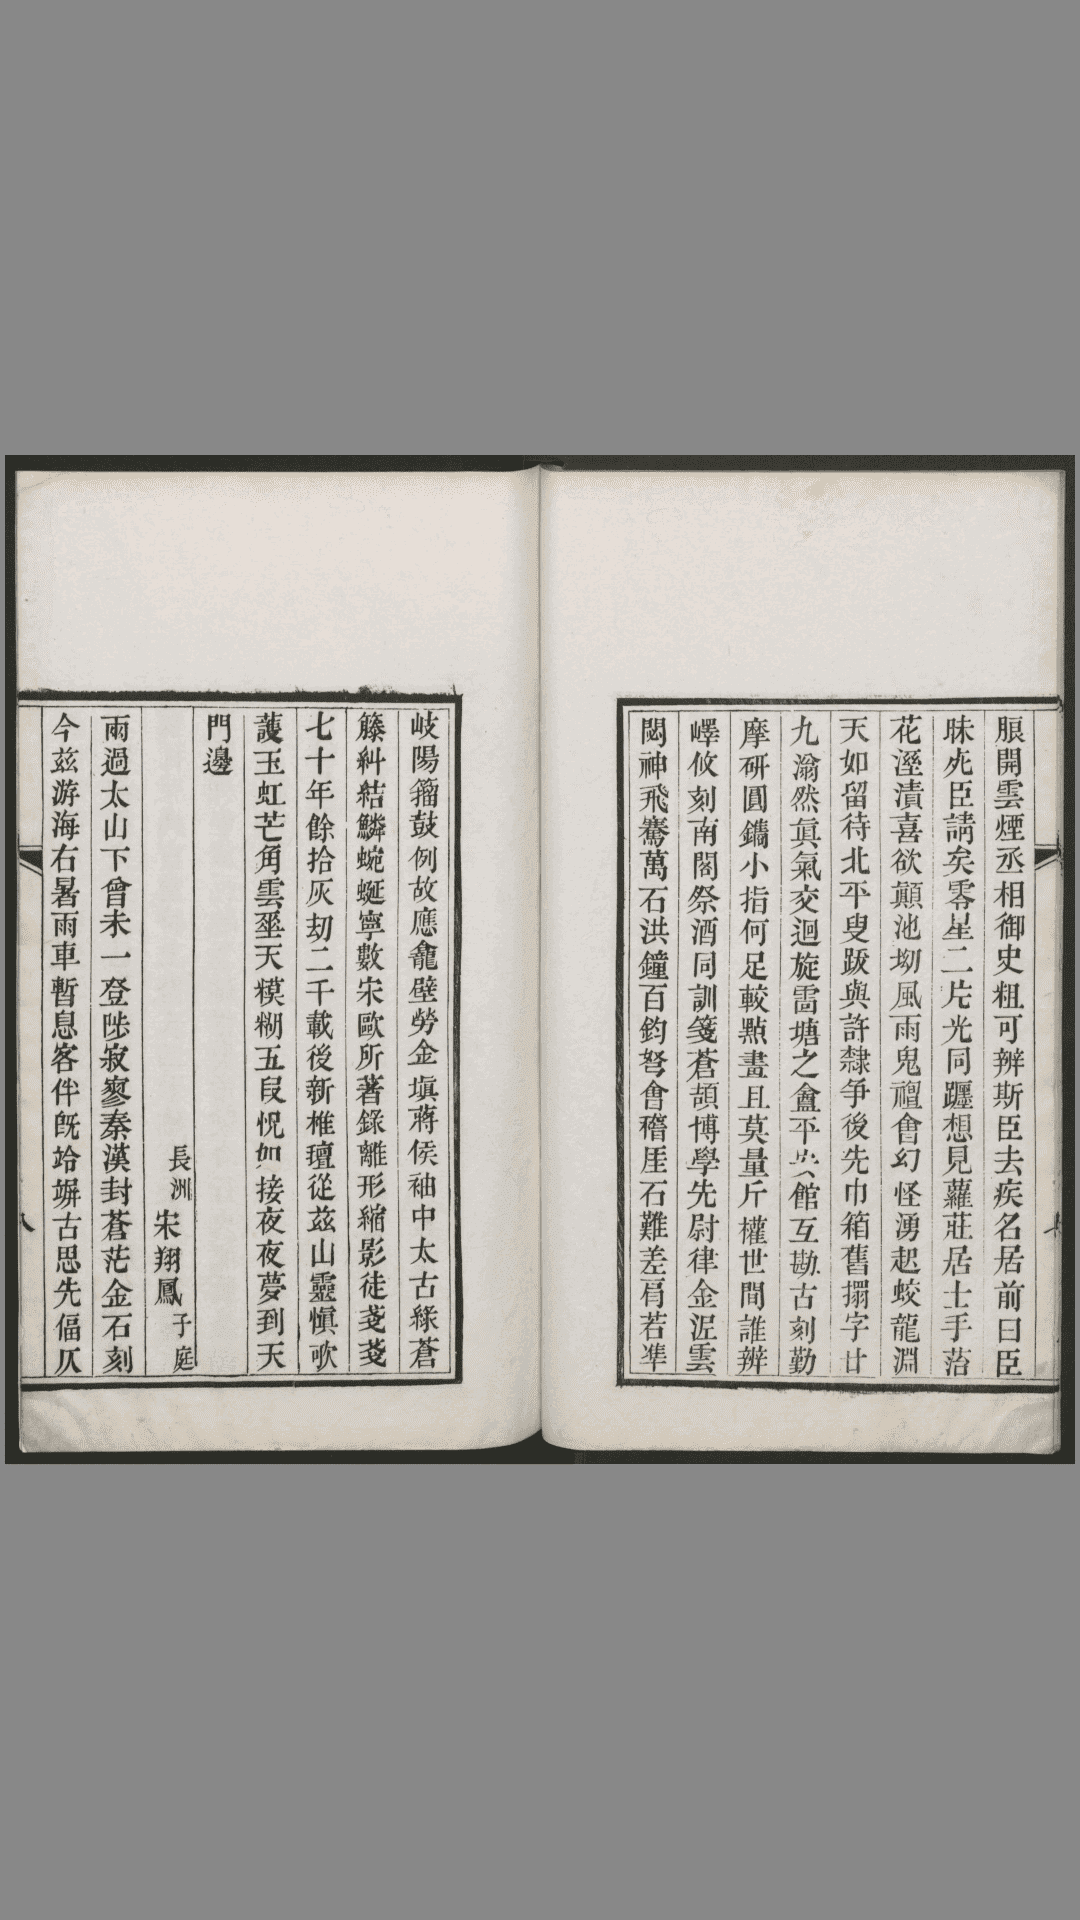 脤開雲煙丞相御史粗可辨斯臣去疾名居前曰臣
昧死臣請矣零星二片光同躔想見蘿莊居士手萡
花溼漬喜欲顚池坳風雨鬼禮會幻怪湧起蛟龍淵
天如留待北平叟跋與許隸爭後先巾箱舊搨字廿
九滃然眞氣交迴旋雷塘之盦平安館互勘古刻勤
摩研圓鐫小指何足較點畫且莫量斤權世間誰辨
嶧攸刻南閣祭酒同訓箋蒼頡博學先尉律金泥雲
閟神飛騫萬石洪鐘百鈞弩會稽厓石難差肩若準
岐陽籀鼓例故應龕壁勞金塡蔣侯袖中太古綠蒼
籐糾結鱗蜿蜒寧數宋歐所著錄離形縮影徒戔戔
七十年餘拾灰劫二千載後新椎璮從茲山靈愼呵
護玉虹芒角雲垩天糢糊五叚怳如接夜夜夢到天
門邊
長洲宋翔鳳子庭
雨過太山下曾未一登陟寂寥秦漢封蒼茫金石刻
今茲游海右暑雨車暫息客伴旣跲塀古思先偪仄
八